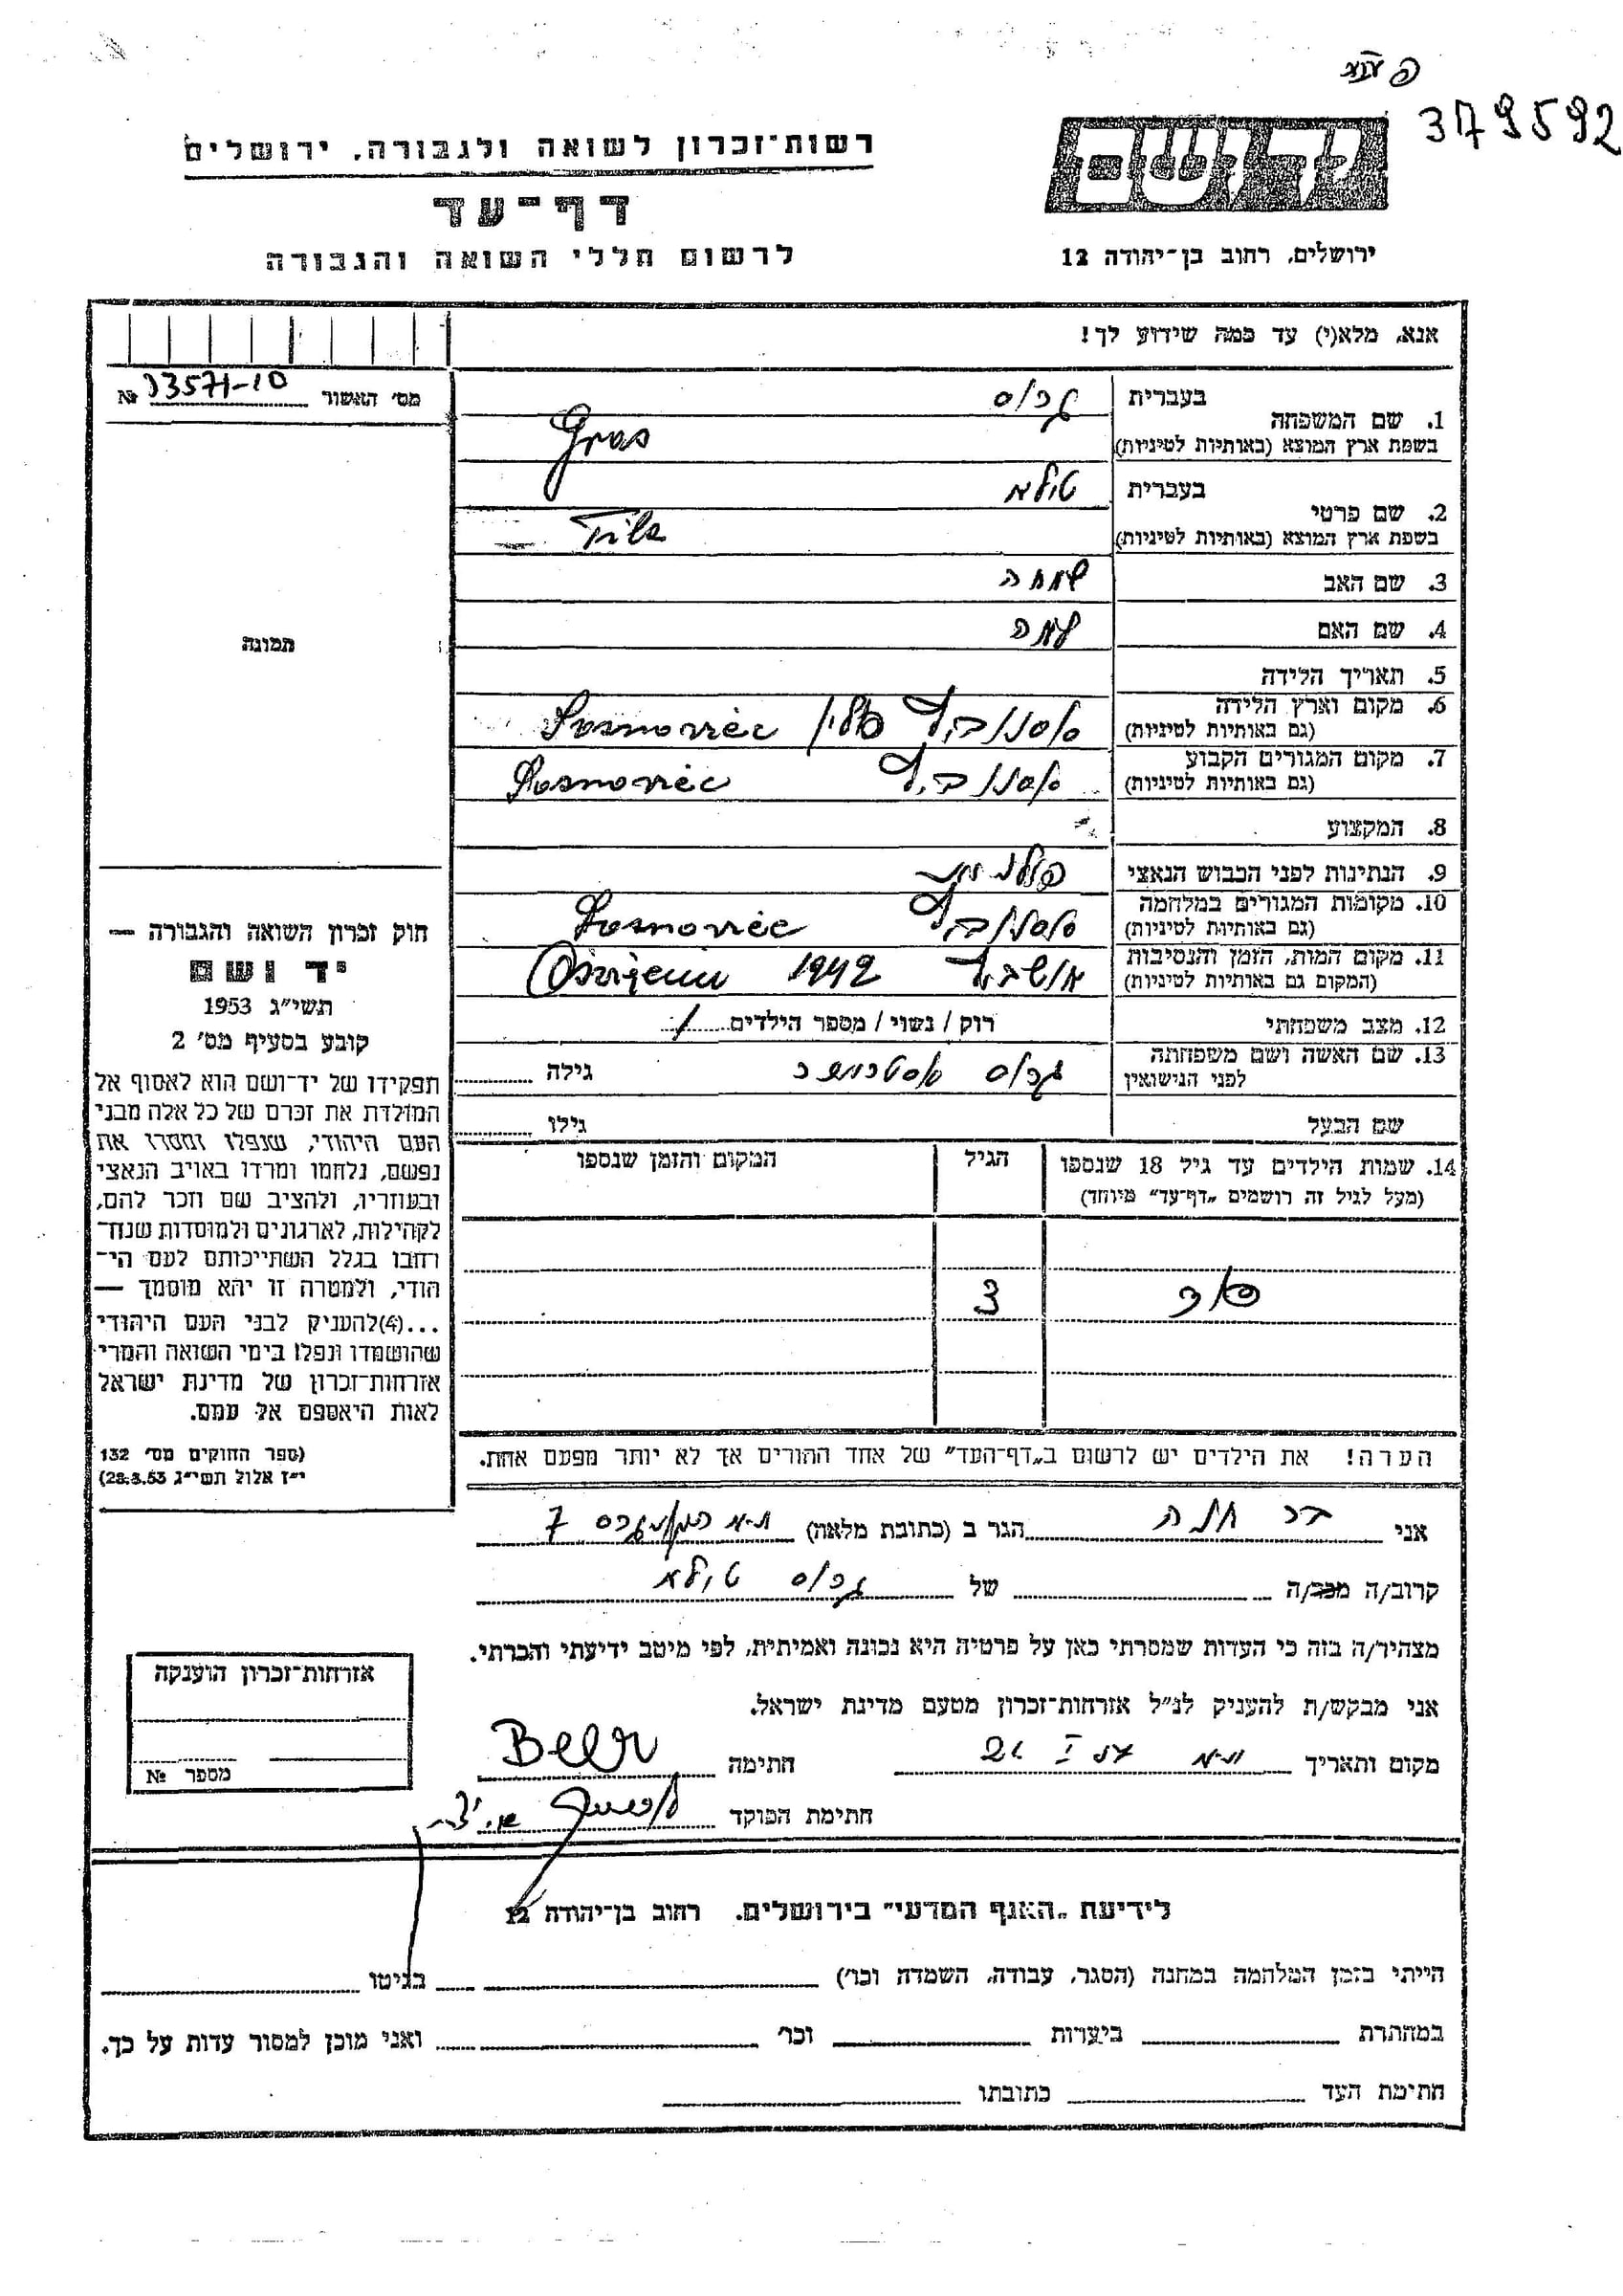 379592
רשות־זכרון לשואה ולגבורה, ירושלים
דף־עד
לרשום חללי השואה והגבורה
יד ושם
ירושלים, רחוב בן־יהודה 12
אנא, מלא(י) עד כמה שידוע לך!
מס׳ האשור № 03571-10
1. שם המשפחה
בעברית גרוס
בשפת ארץ המוצא (באותיות לטיניות) Gros
2. שם פרטי
בעברית טילא
בשפת ארץ המוצא (באותיות לטיניות) Tila
3. שם האב שמחה
4. שם האם
5. תאריך הלידה
6. מקום וארץ הלידה
(גם באותיות לטיניות) סוסנוביץ פולין Sosnoviec
7. מקום המגורים הקבוע
(גם באותיות לטיניות) סוסנוביץ Sosnoviec
8. המקצוע
9. הנתינות לפני הכבוש הנאצי פולנית
10. מקומות המגורים במלחמה
(גם באותיות לטיניות) סוסנוביץ Sosnoviec
11. מקום המות, הזמן והנסיבות
(המקום גם באותיות לטיניות) אושביץ 1942
12. מצב משפחתי רוק / נשוי / מספר הילדים 1
13. שם האשה ושם משפחתה
לפני הנישואין גרוס גילה
שם הבעל גילו
14. שמות הילדים עד גיל 18 שנספו
(מעל לגיל זה רושמים „דף־עד״ מיוחד)
הגיל
המקום והזמן שנספו
3
הערה! את הילדים יש לרשום ב„דף־העד״ של אחד ההורים אך לא יותר מפעם אחת.
תמונה
חוק זכרון השואה והגבורה —
יד ושם
תשי״ג 1953
קובע בסעיף מס׳ 2
תפקידו של יד־ושם הוא לאסוף אל
המולדת את זכרם של כל אלה מבני
העם היהודי, שנפלו ומסרו את
נפשם, נלחמו ומרדו באויב הנאצי
ובעוזריו, ולהציב שם וזכר להם,
לקהילות, לארגונים ולמוסדות שנח־
רחבו בגלל השתייכותם לעם הי־
הודי, ולמטרה זו יהא מוסמך —
...(4)להעניק לבני העם היהודי
שהושמדו ונפלו בימי השואה והמרי
אזרחות־זכרון של מדינת ישראל
לאות היאספם אל עמם.
(ספר החוקים מס׳ 132
י״ז אלול תשי״ג 28.8.53)
אני בר חנה הגר ב (כתובת מלאה) ת-א 7
קרוב/ה מכר/ה של גרוס טילא
מצהיר/ה בזה כי העדות שמסרתי כאן על פרטיה היא נכונה ואמיתית, לפי מיטב ידיעתי והכרתי.
אני מבקש/ת להעניק לנ״ל אזרחות־זכרון מטעם מדינת ישראל.
מקום ותאריך ת-א חתימה Beer
חתימת הפוקד
אזרחות־זכרון הוענקה
מספר №
לידיעת „האגף המדעי״ בירושלים. רחוב בן־יהודה 12
הייתי בזמן המלחמה במחנה (הסגר, עבודה, השמדה וכו׳) בגיטו
במחתרת ביערות וכו׳ ואני מוכן למסור עדות על כך.
חתימת העד כתובתו